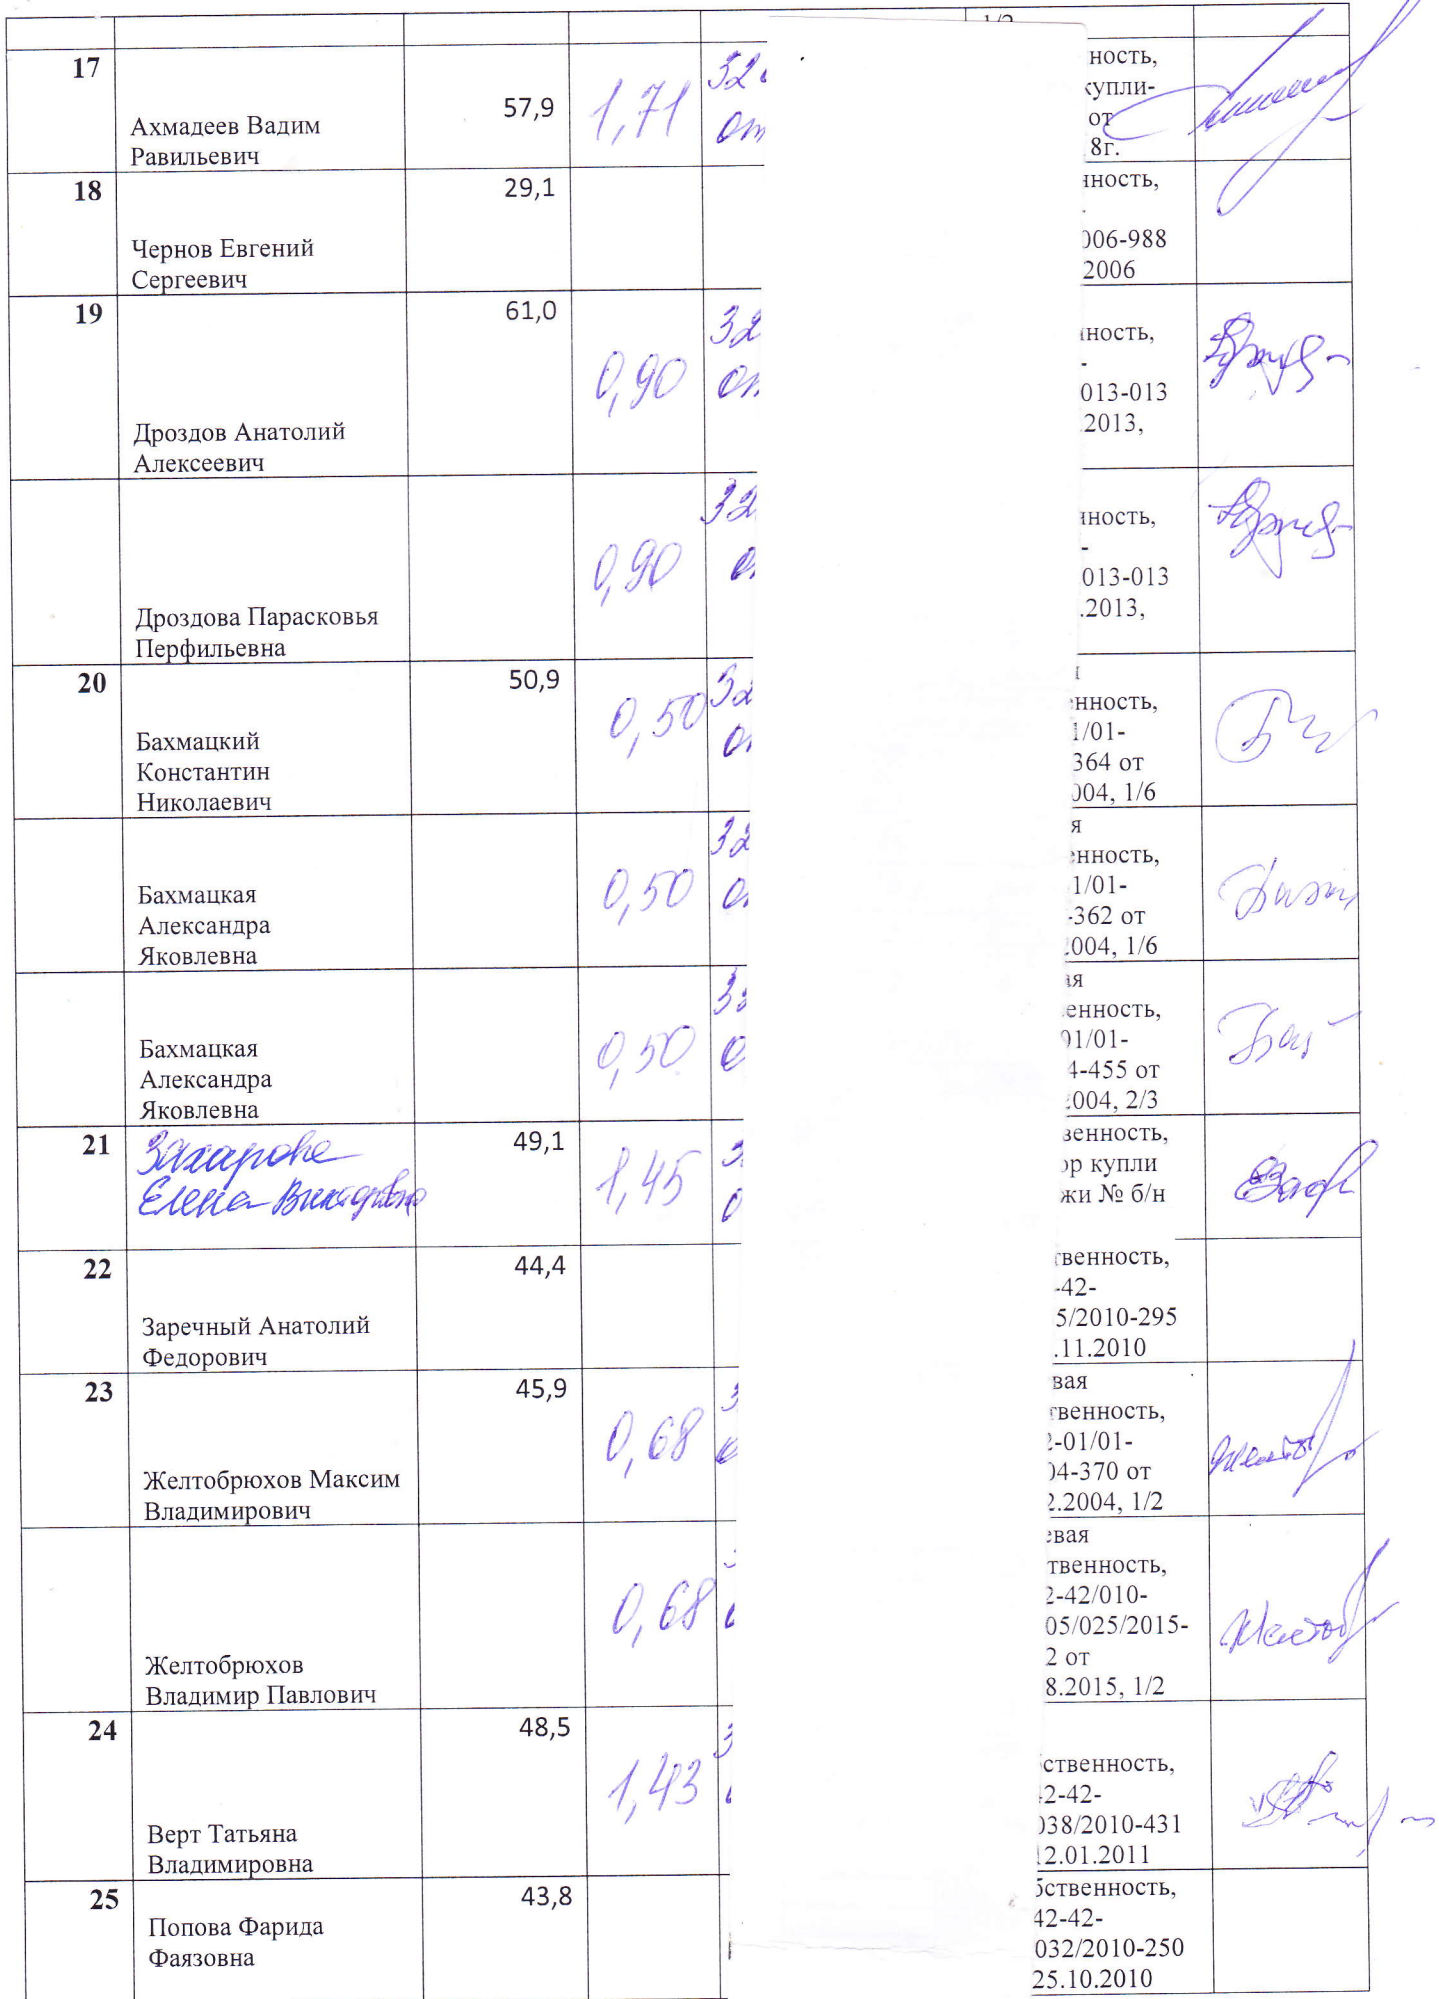 1/2
17
Ахмадеев Вадим
Равильевич
57,9
1,71
от
ность,
купли-
от
8г.
18
Чернов Евгений
Сергеевич
29,1
нность,
006-988
2006
19
Дроздов Анатолий
Алексеевич
61,0
0,90
32
от
нность,
-
013-013
.2013,
Дроздова Парасковья
Перфильевна
0,90
32
нность,
-
013-013
.2013,
20
Бахмацкий
Константин
Николаевич
50,9
0,50
32
нность,
1/01-
364 от
004, 1/6
Бахмацкая
Александра
Яковлевна
0,50
32
я
енность,
1/01-
-362 от
2004, 1/6
Бахмацкая
Александра
Яковлевна
0,50
ая
енность,
01/01-
4-455 от
2004, 2/3
21
Захарова
Елена Викторовна
49,1
1,45
венность,
ор купли
жи № б/н
22
Заречный Анатолий
Федорович
44,4
твенность,
-42-
5/2010-295
.11.2010
23
Желтобрюхов Максим
Владимирович
45,9
0,68
вая
твенность,
2-01/01-
04-370 от
2.2004, 1/2
Желтобрюхов
Владимир Павлович
0,68
евая
твенность,
2-42/010-
05/025/2015-
2 от
8.2015, 1/2
24
Верт Татьяна
Владимировна
48,5
1,43
ственность,
42-42-
038/2010-431
12.01.2011
25
Попова Фарида
Фаязовна
43,8
бственность,
42-42-
032/2010-250
25.10.2010